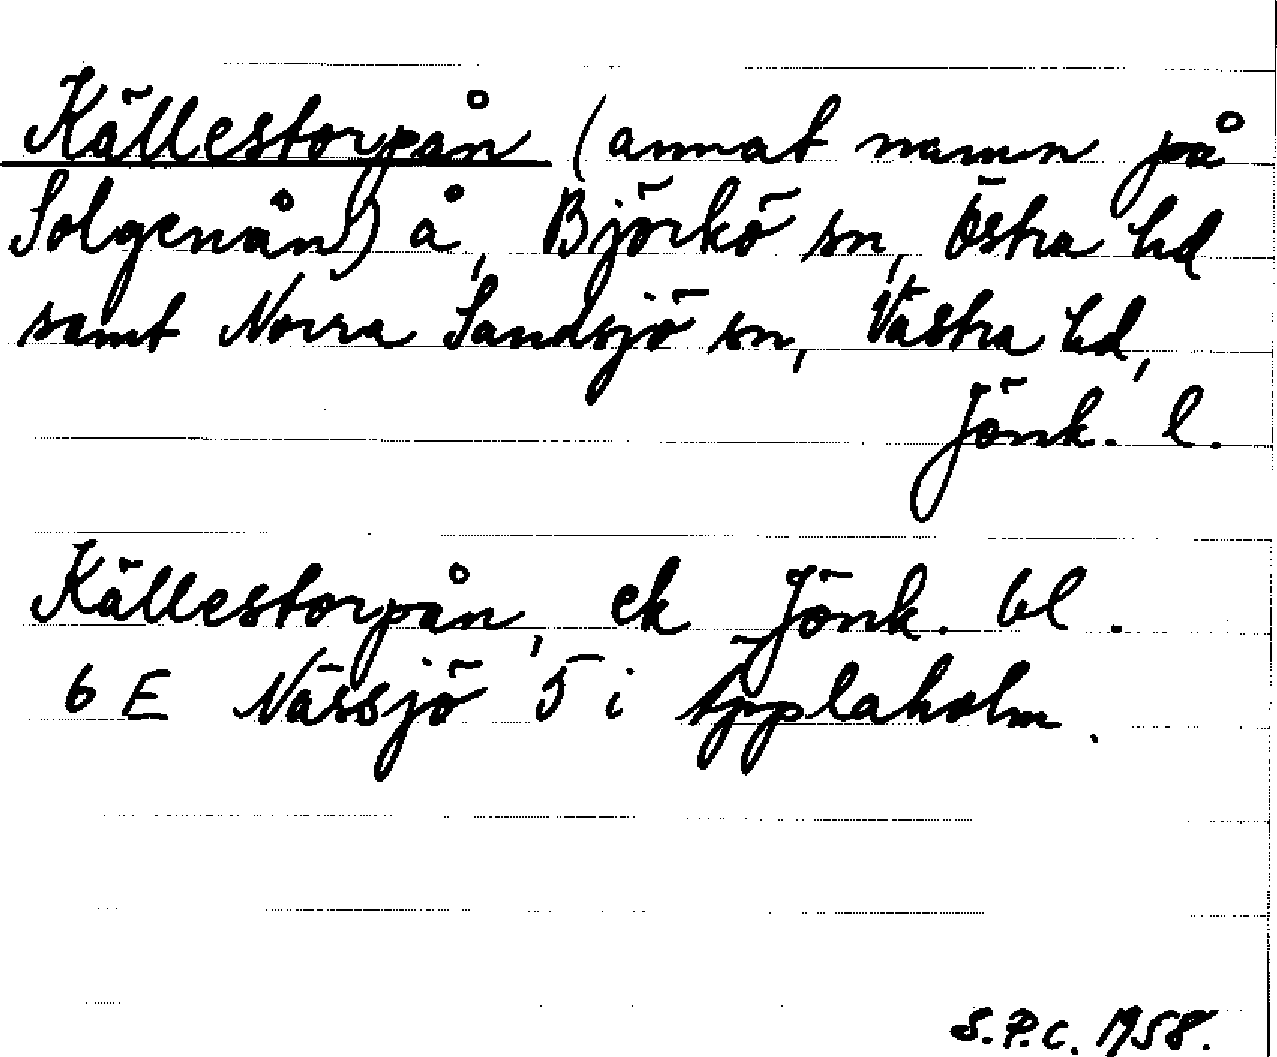 Källestorpån (annat namn på
Solgenån) å, Björkö sn, Östra hd
samt Norra Sandsjö sn, Västra hd,
Jönk. l.
Källestorpån, ek Jönk. bl.
6 E Nässjö 5 i Äpplaholm.
S.P.C. 1958.